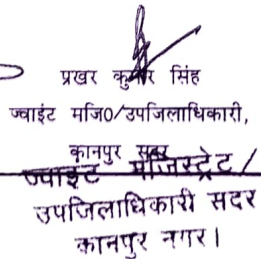 प्रखर कुमार सिंह
ज्वाइंट मजि0/उपजिलाधिकारी,
कानपुर सदर
ज्वाइंट मजिस्ट्रेट/
उपजिलाधिकारी सदर
कानपुर नगर।